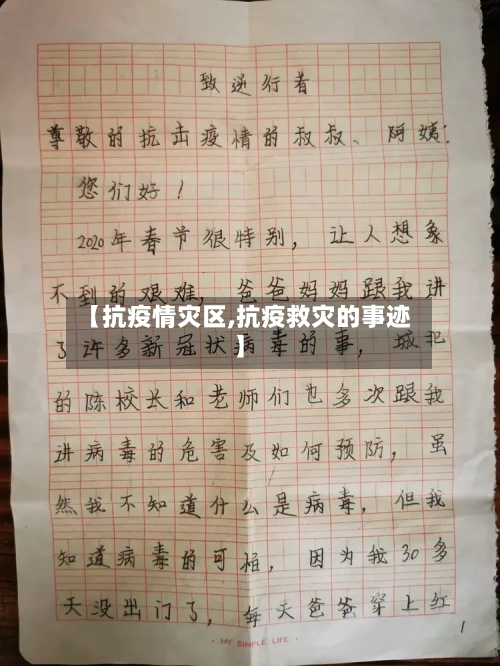 致逆行者
尊敬的抗击疫情的叔叔、阿姨：
您们好！
2020年春节很特别，让人想象
不到的艰难，爸爸妈妈跟我讲
【抗疫情灾区,抗疫救灾的事迹
】
了许多新冠状病毒的事，城北
的陈校长和老师们也多次跟我
讲病毒的危害及如何预防，虽
然我不知道什么是病毒，但我
知道病毒的可怕，因为我30多
天没出门了，每天爸爸穿上红
1
· MY SIMPLE LIFE ·